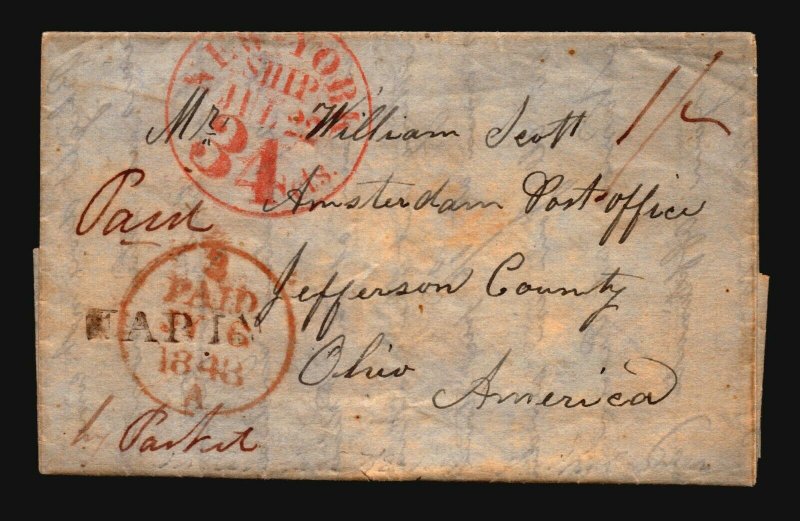 NEW YORK
SHIP
JUL 22
34 Cts.
1/2
Mr William Scott
Amsterdam Post office
Jefferson County
Ohio
America
Paid
PAID
1848
A
by Packet